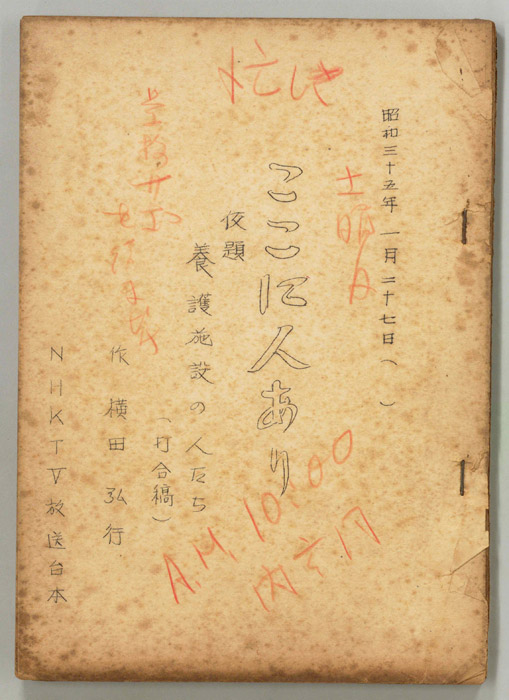 昭和三十五年 一月二十七日( )
忙しき
土曜日
ここに人あり
仮題
養護施設の人たち
(打合稿)
作 横田弘行
NHKTV放送台本
A.M 10:00
内玄関